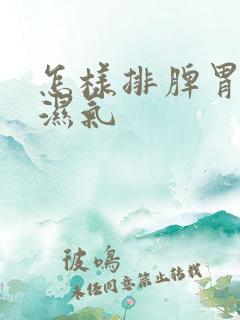 怎樣排脾胃
濕氣
彼鳴
未任同意禁止转载